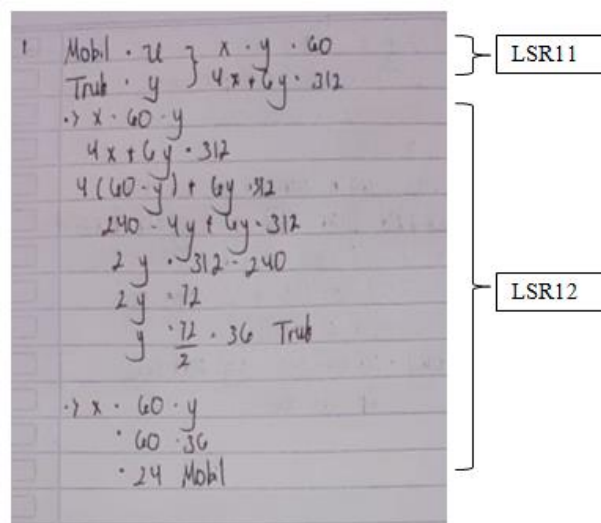 1 Mobil = x } x + y = 60
Truk = y } 4x + 6y = 312
•> x = 60 - y
4x + 6y = 312
4(60 - y) + 6y = 312
240 - 4y + 6y = 312
2y = 312 - 240
2y = 72
y = 72/2 = 36 Truk
•> x = 60 - y
= 60 - 36
= 24 Mobil
LSR11
LSR12